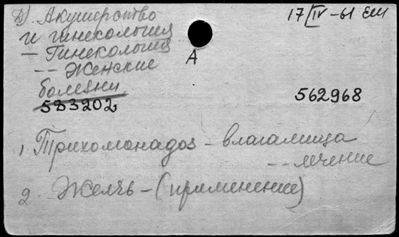 Д) Акушерство 17/IV-61 Еш
и гинекология
— Гинекология
А
-- Женские
болезни
583202 562968
1. Трихомонадоз - влагалища
-- лечение
2. Желчь - (применение)